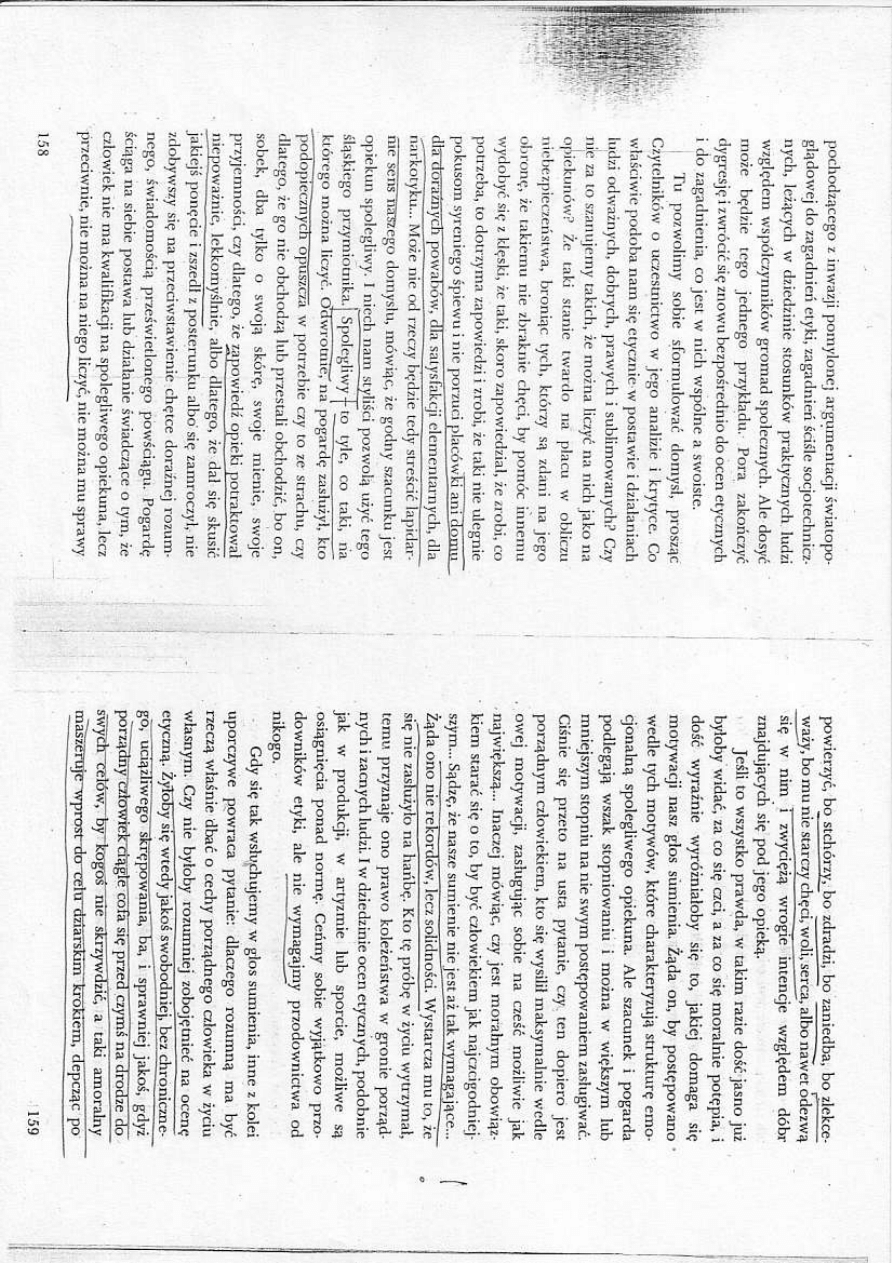 pochodzącego z inwazji pomylonej argumentacji światopo-
glądowej do zagadnień etyki, zagadnień ściśle socjotechnicz-
nych, leżących w dziedzinie stosunków praktycznych ludzi
względem współczynników gromad społecznych. Ale dosyć
może będzie tego jednego przykładu. Pora zakończyć
dygresję i zwrócić się znowu bezpośrednio do ocen etycznych
i do zagadnienia, co jest w nich wspólne a swoiste.
Tu pozwolimy sobie sformułować domysł, prosząc
Czytelników o uczestnictwo w jego analizie i krytyce. Co
właściwie podoba nam się etycznie w postawie i działaniach
ludzi odważnych, dobrych, prawych i sublimowanych? Czy
nie za to szanujemy takich, że można liczyć na nich jako na
opiekunów? Że taki stanie twardo na placu w obliczu
niebezpieczeństwa, broniąc tych, którzy są zdani na jego
obronę, że takiemu nie zbraknie chęci, by pomóc innemu
wydobyć się z klęski, że taki, skoro zapowiedział, że zrobi, co
potrzeba, to dotrzyma zapowiedzi i zrobi, że taki nie ulegnie
pokusom syreniego śpiewu i nie porzuci placówki ani domu
dla doraźnych powabów, dla satysfakcji elementarnych, dla
narkotyku... Może nie od rzeczy będzie tedy streścić lapidar-
nie sens naszego domysłu, mówiąc, że godny szacunku jest
opiekun spolegliwy. I niech nam styliści pozwolą użyć tego
śląskiego przymiotnika. Spolegliwy – to tyle, co taki, na
którego można liczyć. Odwrotnie, na pogardę zasłużył, kto
podopiecznych opuszcza w potrzebie czy to ze strachu, czy
dlatego, że go nie obchodzą lub przestali obchodzić, bo on,
sobek, dba tylko o swoją skórę, swoje mienie, swoje
przyjemności, czy dlatego, że zapowiedź opieki potraktował
niepoważnie, lekkomyślnie, albo dlatego, że dał się skusić
jakiejś ponęcie i zszedł z posterunku albo się zamroczył, nie
zdobywszy się na przeciwstawienie chętce doraźnej rozum-
nego, świadomością prześwietlonego powściągu. Pogardę
ściąga na siebie postawa lub działanie świadczące o tym, że
człowiek nie ma kwalifikacji na spolegliwego opiekuna, lecz
przeciwnie, nie można na niego liczyć, nie można mu sprawy
158
powierzyć, bo stchórzy, bo zdradzi, bo zaniedba, bo zlekce-
waży, bo mu nie starczy chęci, woli, serca, albo nawet odezwą
się w nim i zwyciężą wrogie intencje względem dóbr
znajdujących się pod jego opieką.
Jeśli to wszystko prawda, w takim razie dość jasno już
byłoby widać, za co się czci, a za co się moralnie potępia, i
dość wyraźnie wyróżniałoby się to, jakiej domaga się
motywacji nasz głos sumienia. Żąda on, by postępowano
wedle tych motywów, które charakteryzują strukturę emo-
cjonalną spolegliwego opiekuna. Ale szacunek i pogarda
podlegają wszak stopniowaniu i można w większym lub
mniejszym stopniu na nie swym postępowaniem zasługiwać.
Ciśnie się przeto na usta pytanie, czy ten dopiero jest
porządnym człowiekiem, kto się wysilił maksymalnie wedle
owej motywacji, zasługując sobie na cześć możliwie jak
największą... Inaczej mówiąc, czy jest moralnym obowiąz-
kiem starać się o to, by być człowiekiem jak najczcigodniej-
szym... Sądzę, że nasze sumienie nie jest aż tak wymagające...
Żąda ono nie rekordów, lecz solidności. Wystarcza mu to, że
się nie zasłużyło na hańbę. Kto tę próbę w życiu wytrzymał,
temu przyznaje ono prawo koleżeństwa w gronie porząd-
nych i zacnych ludzi. I w dziedzinie ocen etycznych, podobnie
jak w produkcji, w artyzmie lub sporcie, możliwe są
osiągnięcia ponad normę. Ceńmy sobie wyjątkowo przo-
downików etyki, ale nie wymagajmy przodownictwa od
nikogo.
Gdy się tak wsłuchujemy w głos sumienia, inne z kolei
uporczywe powraca pytanie: dlaczego rozumną ma być
rzeczą właśnie dbać o cechy porządnego człowieka w życiu
własnym. Czy nie byłoby rozumniej zobojętnieć na ocenę
etyczną. Żyłoby się wtedy jakoś swobodniej, bez chroniczne-
go, uciążliwego skrępowania, ba, i sprawniej jakoś, gdyż
porządny człowiek ciągle cofa się przed czymś na drodze do
swych celów, by kogoś nie skrzywdzić, a taki amoralny
maszeruje wprost do celu dziarskim krokiem, depcząc po
159